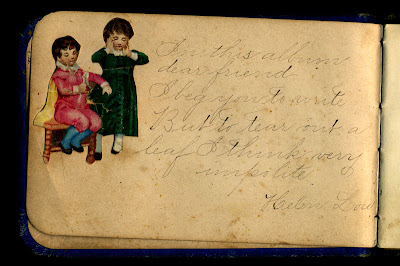 In this album
dear friend
I beg you to write
But to tear out a
leaf I think very
impolite
Helen